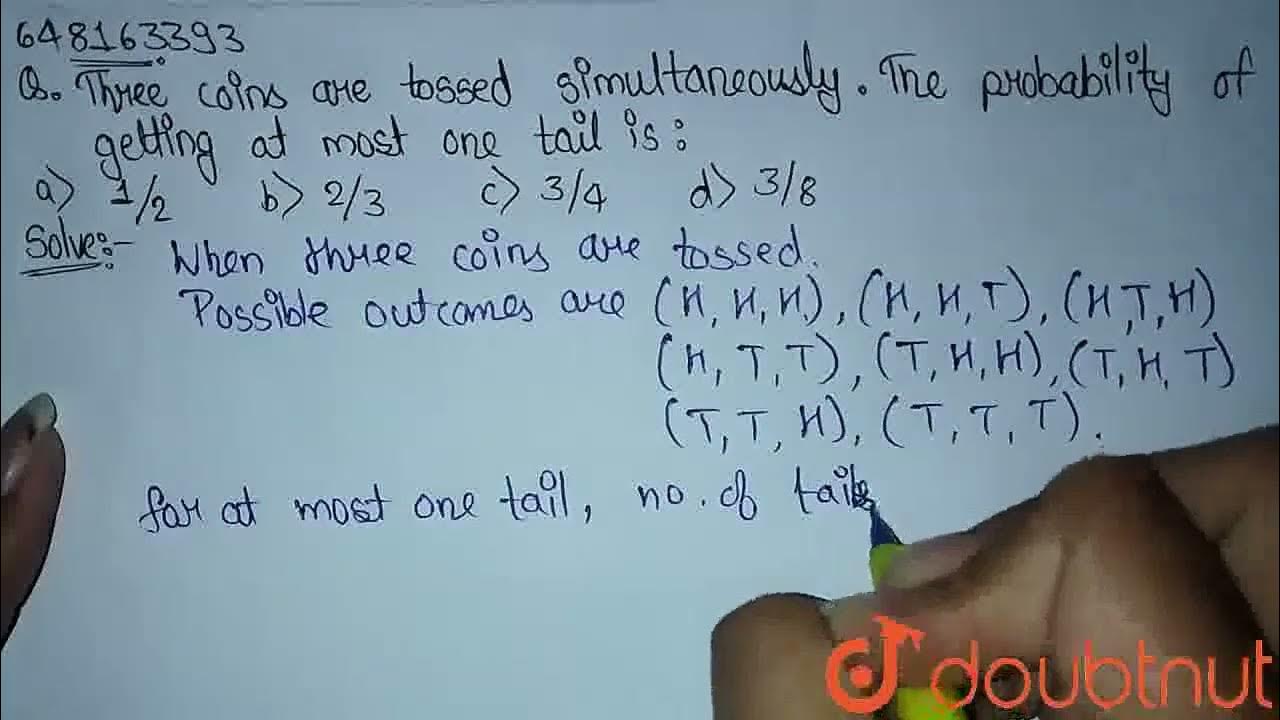 648163393
Q. Three coins are tossed simultaneously. The probability of
getting at most one tail is:
a) 1/2 b) 2/3 c) 3/4 d) 3/8
Solve:- When three coins are tossed.
Possible outcomes are (H, H, H), (H, H, T), (H, T, H)
(H, T, T), (T, H, H), (T, H, T)
(T, T, H), (T, T, T).
for at most one tail, no. of tails
doubtnut